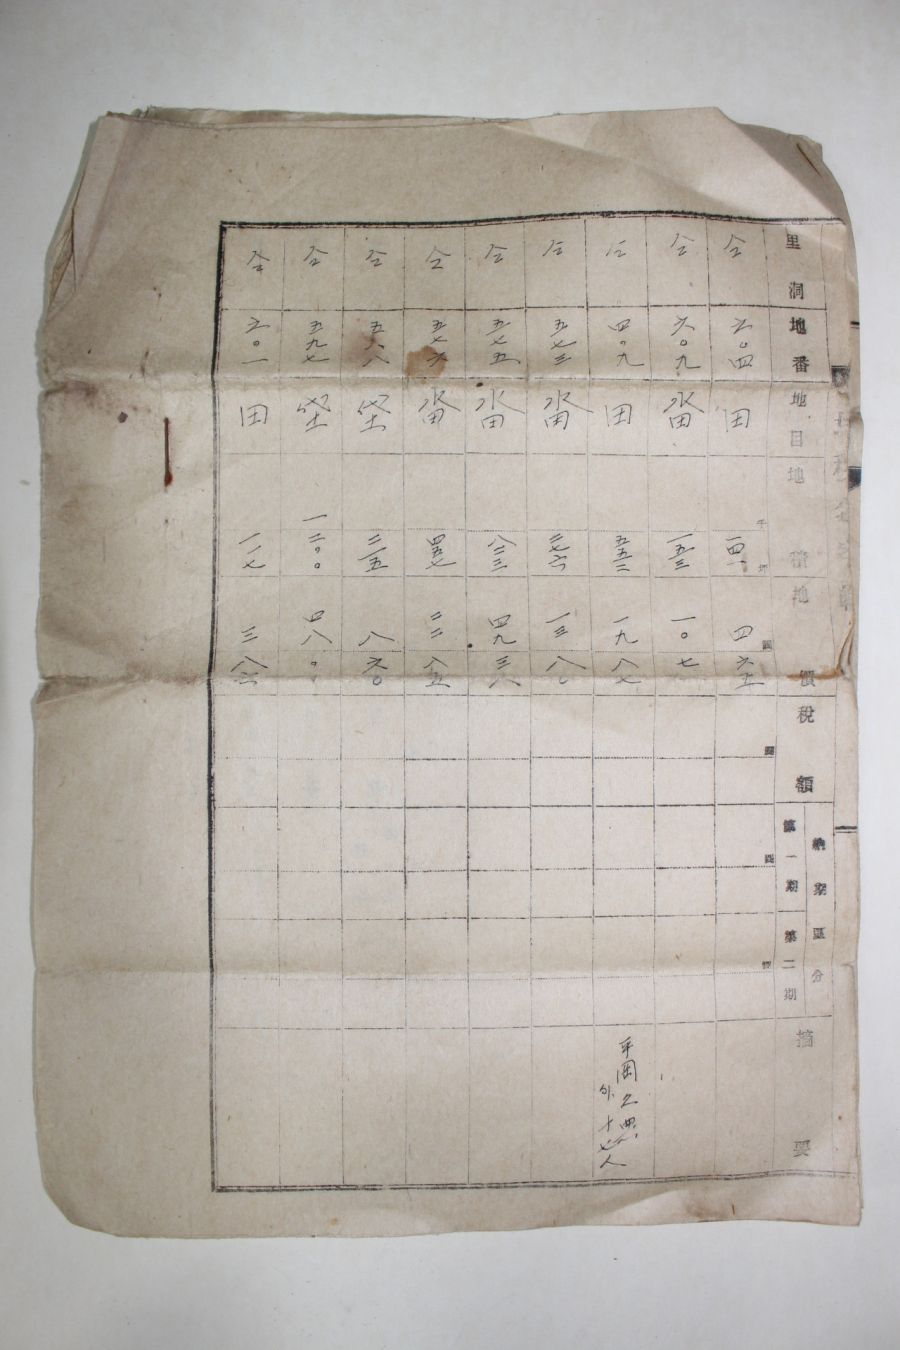 里洞 地番 地目 地積 地價 稅額 納期區分 第一期 第二期 摘要
仝 六〇四 田 一四一 四
仝 六〇九 畓 一五三 一〇七
仝 四〇九 田 五五二 一九八七
仝 五七三 畓 一三八〇
仝 五七五 畓 八三三 四九三八
仝 五七六 畓 四五七 二二八五
仝 五八八 垈 二一五 八六〇
仝 五九七 垈 一二〇〇 四八〇〇
仝 六〇一 田 一一七 三八六
外十七人